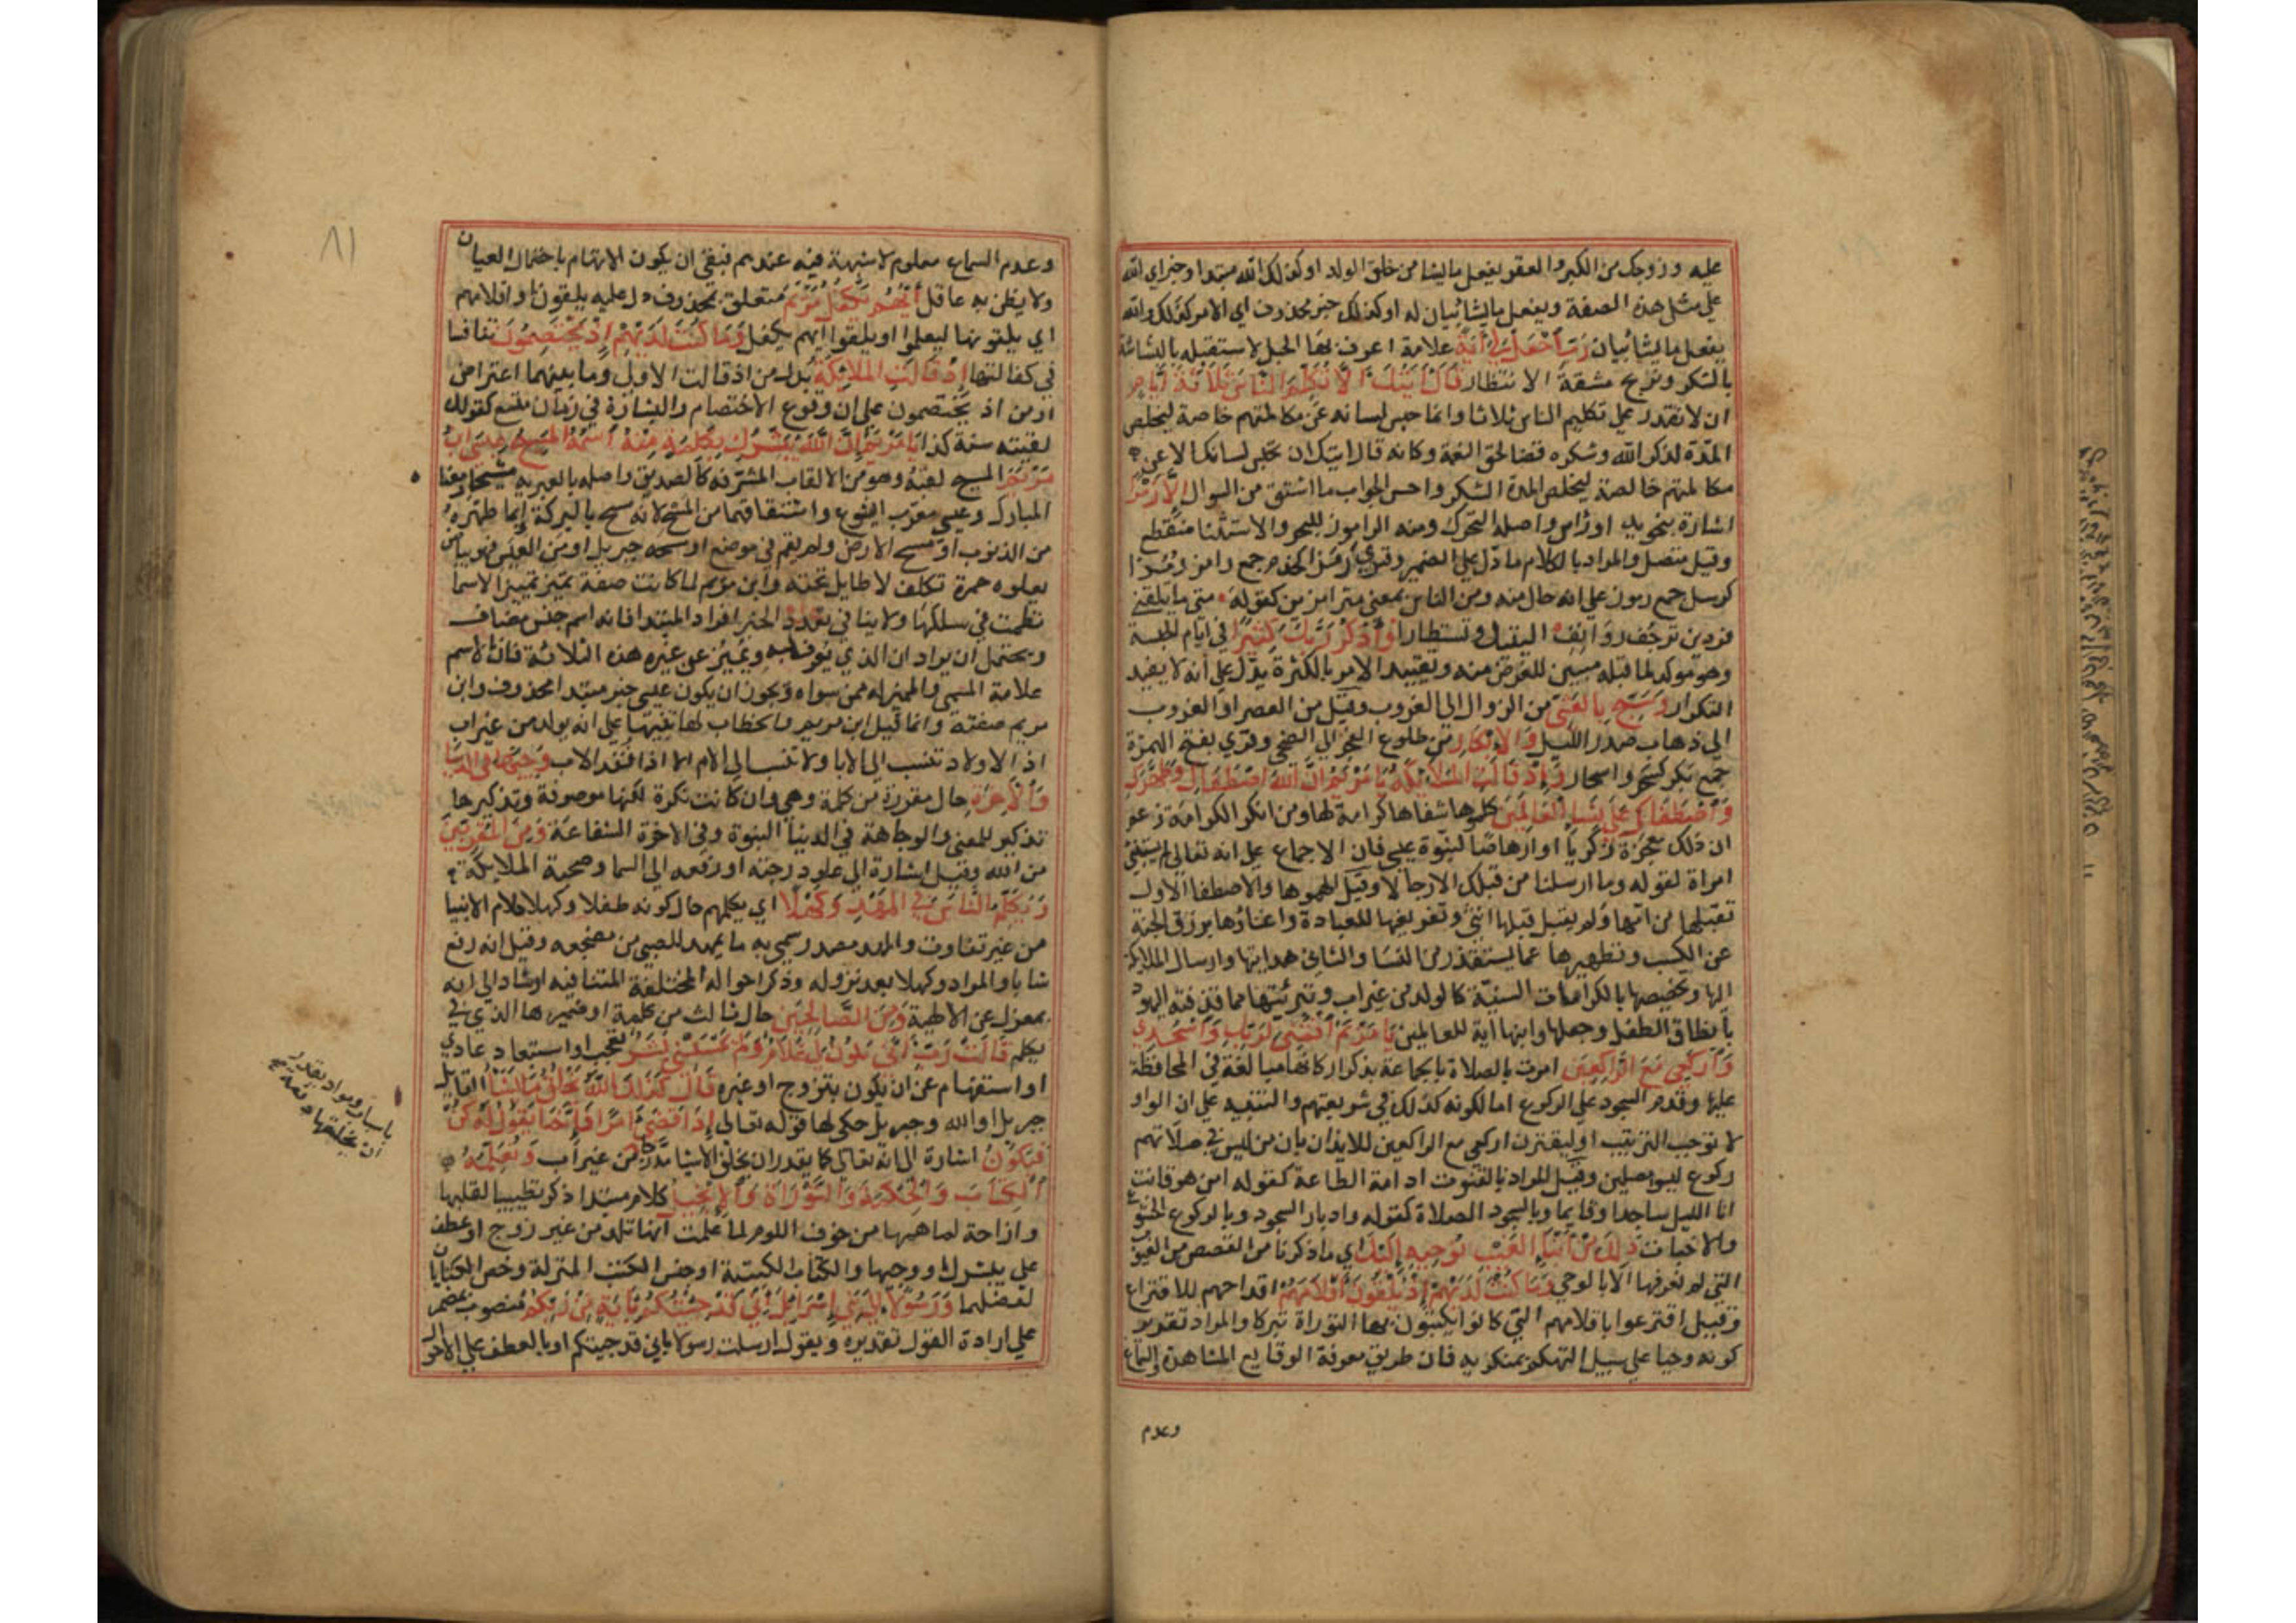 عليه وزوجك من الكبر والعقر يفعل ما يشا من خلق الولد او كذلك الله مبتدا وخبر اي الله
علي مثل هذه الصفة ويفعل ما يشا بيان له او كذلك خبر محذوف اي الامر كذلك والله
يفعل ما يشا بيان رَبِّ اجْعَل لِّي آيَةً علامة اعرف بها الحبل لاستقبله بالبشاشة
بالشكر وتزيح مشقة الانتظار قَالَ آيَتُكَ أَلَّا تُكَلِّمَ النَّاسَ ثَلَاثَةَ أَيَّامٍ
ان لا تقدر علي تكليم الناس ثلاثا وانما حبس لسانه عن مكالمتهم خاصة ليخلص
المدة لذكر الله وشكره قضا لحق النعمة وكانه قال ايتك ان تحبس لسانك الا عن
مكالمتهم خالصة ليخلص المدة الشكر واحسن الجواب ما اشتق من السوال إِلَّا رَمْزًا
اشارة بنحو يد او راس واصله التحرك ومنه الراموز للبحر والاستثنا منقطع
وقيل متصل والمراد بالكلام ما دل علي الضمير وقري رَمَزًا كخدم جمع رامز ورُمُزًا
كرسل جمع رموز علي انه حال منه ومن الناس بمعني مترامزين كقوله متي ما تلقني
فردين ترجف روانف اليتيك وتستطارا وَاذْكُر رَّبَّكَ كَثِيرًا في ايام الحبسة
وهو موكد لما قبله مبين للغرض منه وتقييد الامر بالكثرة يدل علي انه لا يفيد
التكرار وَسَبِّحْ بِالْعَشِيِّ من الزوال الي الغروب وقيل من العصر او الغروب
الي ذهاب صدر الليل وَالْإِبْكَارِ من طلوع الفجر الي الضحي وقري بفتح الهمزة
جمع بكر كسحر واسحار وَإِذْ قَالَتِ الْمَلَائِكَةُ يَا مَرْيَمُ إِنَّ اللَّهَ اصْطَفَاكِ وَطَهَّرَكِ
وَاصْطَفَاكِ عَلَى نِسَاءِ الْعَالَمِينَ كلموها شفاها كرامة لها ومن انكر الكرامة زعم
ان ذلك معجزة زكريا او ارهاصا لنبوة عيسي فان الاجماع علي انه تعالي لم يستنبئ
امراة لقوله وما ارسلنا من قبلك الا رجالا وقيل الهموها والاصطفا الاول
تقبلها من امها ولم يقبل قبلها انثي وتفريغها للعبادة واغناؤها برزق الجنة
عن الكسب وتطهيرها عما يستقذر من النسا والثاني هدايتها وارسال الملايكة
اليها وتخصيصها بالكرامات السنية كالولد من غير اب وتبرئتها مما قذفته اليهود
بانطاق الطفل وجعلها وابنها اية للعالمين يَا مَرْيَمُ اقْنُتِي لِرَبِّكِ وَاسْجُدِي
وَارْكَعِي مَعَ الرَّاكِعِينَ امرت بالصلاة بالجماعة بذكر اركانها مبالغة في المحافظة
عليها وقدم السجود علي الركوع اما لكونه كذلك في شريعتهم والتنبيه علي ان الواو
لا توجب الترتيب او ليقترن اركعي مع الراكعين للايذان بان من ليس في صلاتهم
ركوع ليسو مصلين وقيل المراد بالقنوت ادامة الطاعة كقوله امن هو قانت
انا الليل ساجدا وقايما وبالسجود الصلاة كقوله وادبار السجود وبالركوع الخشوع
والاخبات ذَلِكَ مِنْ أَنبَاءِ الْغَيْبِ نُوحِيهِ إِلَيْكَ اي ما ذكرنا من القصص من الغيوب
التي لم تعرفها الا بالوحي وَمَا كُنتَ لَدَيْهِمْ إِذْ يُلْقُونَ أَقْلَامَهُمْ اقداحهم للاقتراع
وقيل اقترعوا باقلامهم التي كانوا يكتبون بها التوراة تبركا والمراد تقدير
كونه وحيا علي سبيل التهكم بمنكريه فان طريق معرفة الوقايع المشاهدة والسماع
وعدم
٨١
وعدم السماع معلوم لا شبهة فيه عندهم فبقي ان يكون الاتهام باحتمال العيان
ولا يظن به عاقل أَيُّهُمْ يَكْفُلُ مَرْيَمَ متعلق بمحذوف دل عليه يلقون اقلامهم
اي يلقونها ليعلموا او يلقوا ايهم يكفل وَمَا كُنتَ لَدَيْهِمْ إِذْ يَخْتَصِمُونَ تنافسا
في كفالتها إِذْ قَالَتِ الْمَلَائِكَةُ بدل من اذ قالت الاولي وما بينهما اعتراض
او من اذ يختصمون علي ان وقوع الاختصام والبشارة في زمان متسع كقولك
لقيته سنة كذا يَا مَرْيَمُ إِنَّ اللَّهَ يُبَشِّرُكِ بِكَلِمَةٍ مِّنْهُ اسْمُهُ الْمَسِيحُ عِيسَى ابْنُ
مَرْيَمَ المسيح لقبه وهو من الالقاب المشرفة كالصديق واصله بالعبرية مشيحا ومعناه
المبارك وعيسي معرب ايشوع واشتقاقهما من المسح لانه مسح بالبركة او بما طهره
من الذنوب او مسح الارض ولم يقم في موضع او مسحه جبريل او من العيس وهو بياض
يعلوه حمرة تكلف لا طايل تحته وابن مريم لما كانت صفة تميز تمييز الاسما
نظمت في سلكها ولا ينافي تعدد الخبر افراد المبتدا فانه اسم جنس مضاف
ويحتمل ان يراد ان الذي يعرف به ويميز عن غيره هذه الثلاثة فان الاسم
علامة المسمي والمميز له ممن سواه ويجوز ان يكون عيسي خبر مبتدا محذوف وابن
مريم صفته وانما قيل ابن مريم والخطاب لها تنبيها علي انه يولد من غير اب
اذ الاولاد تنسب الي الابا ولا تنسب الي الام الا اذا فقد الاب وَجِيهًا فِي الدُّنْيَا
وَالْآخِرَةِ حال مقدرة من كلمة وهي وان كانت نكرة لكنها موصوفة وتذكيرها
تذكير للمعني والوجاهة في الدنيا النبوة وفي الاخرة الشفاعة وَمِنَ الْمُقَرَّبِينَ
من الله وقيل اشارة الي علو درجته او رفعه الي السما وصحبة الملايكة
وَيُكَلِّمُ النَّاسَ فِي الْمَهْدِ وَكَهْلًا اي يكلمهم حال كونه طفلا وكهلا كلام الانبيا
من غير تفاوت والمهد مصدر سمي به ما يمهد للصبي من مضجعه وقيل انه رفع
شابا والمراد وكهلا بعد نزوله وذكر احواله المختلفة المتنافية ارشاد الي انه
بمعزل عن الالهية وَمِنَ الصَّالِحِينَ حال ثالث من كلمة او ضميرها الذي في
يكلم قَالَتْ رَبِّ أَنَّى يَكُونُ لِي غُلَامٌ وَلَمْ يَمْسَسْنِي بَشَرٌ تعجب او استبعاد عادي
او استفهام عن ان يكون بتزوج او غيره قَالَ كَذَلِكِ اللَّهُ يَخْلُقُ مَا يَشَاءُ القايل
جبريل او الله وجبريل حكي لها قوله تعالي إِذَا قَضَى أَمْرًا فَإِنَّمَا يَقُولُ لَهُ كُن
فَيَكُونُ اشارة الي انه تعالي كما يقدر ان يخلق الاشيا مدرجا من غير اب وَنُعَلِّمُهُ
الْكِتَابَ وَالْحِكْمَةَ وَالتَّوْرَاةَ وَالْإِنجِيلَ كلام مبتدا ذكر تطييبا لقلبها
وازاحة لما همها من خوف اللوم لما علمت انها تلد من غير زوج او عطف
علي يبشرك او وجيها والكتاب الكتبة او جنس الكتب المنزلة وخص الكتابان
لفضلهما وَرَسُولًا إِلَى بَنِي إِسْرَائِيلَ أَنِّي قَدْ جِئْتُكُم بِآيَةٍ مِّن رَّبِّكُمْ منصوب بمضمر
علي ارادة القول تقديره ويقول ارسلت رسولا باني قد جيتكم او بالعطف علي الاحوال
باسباب ومواد يقدر
ان يخلقها دفعة